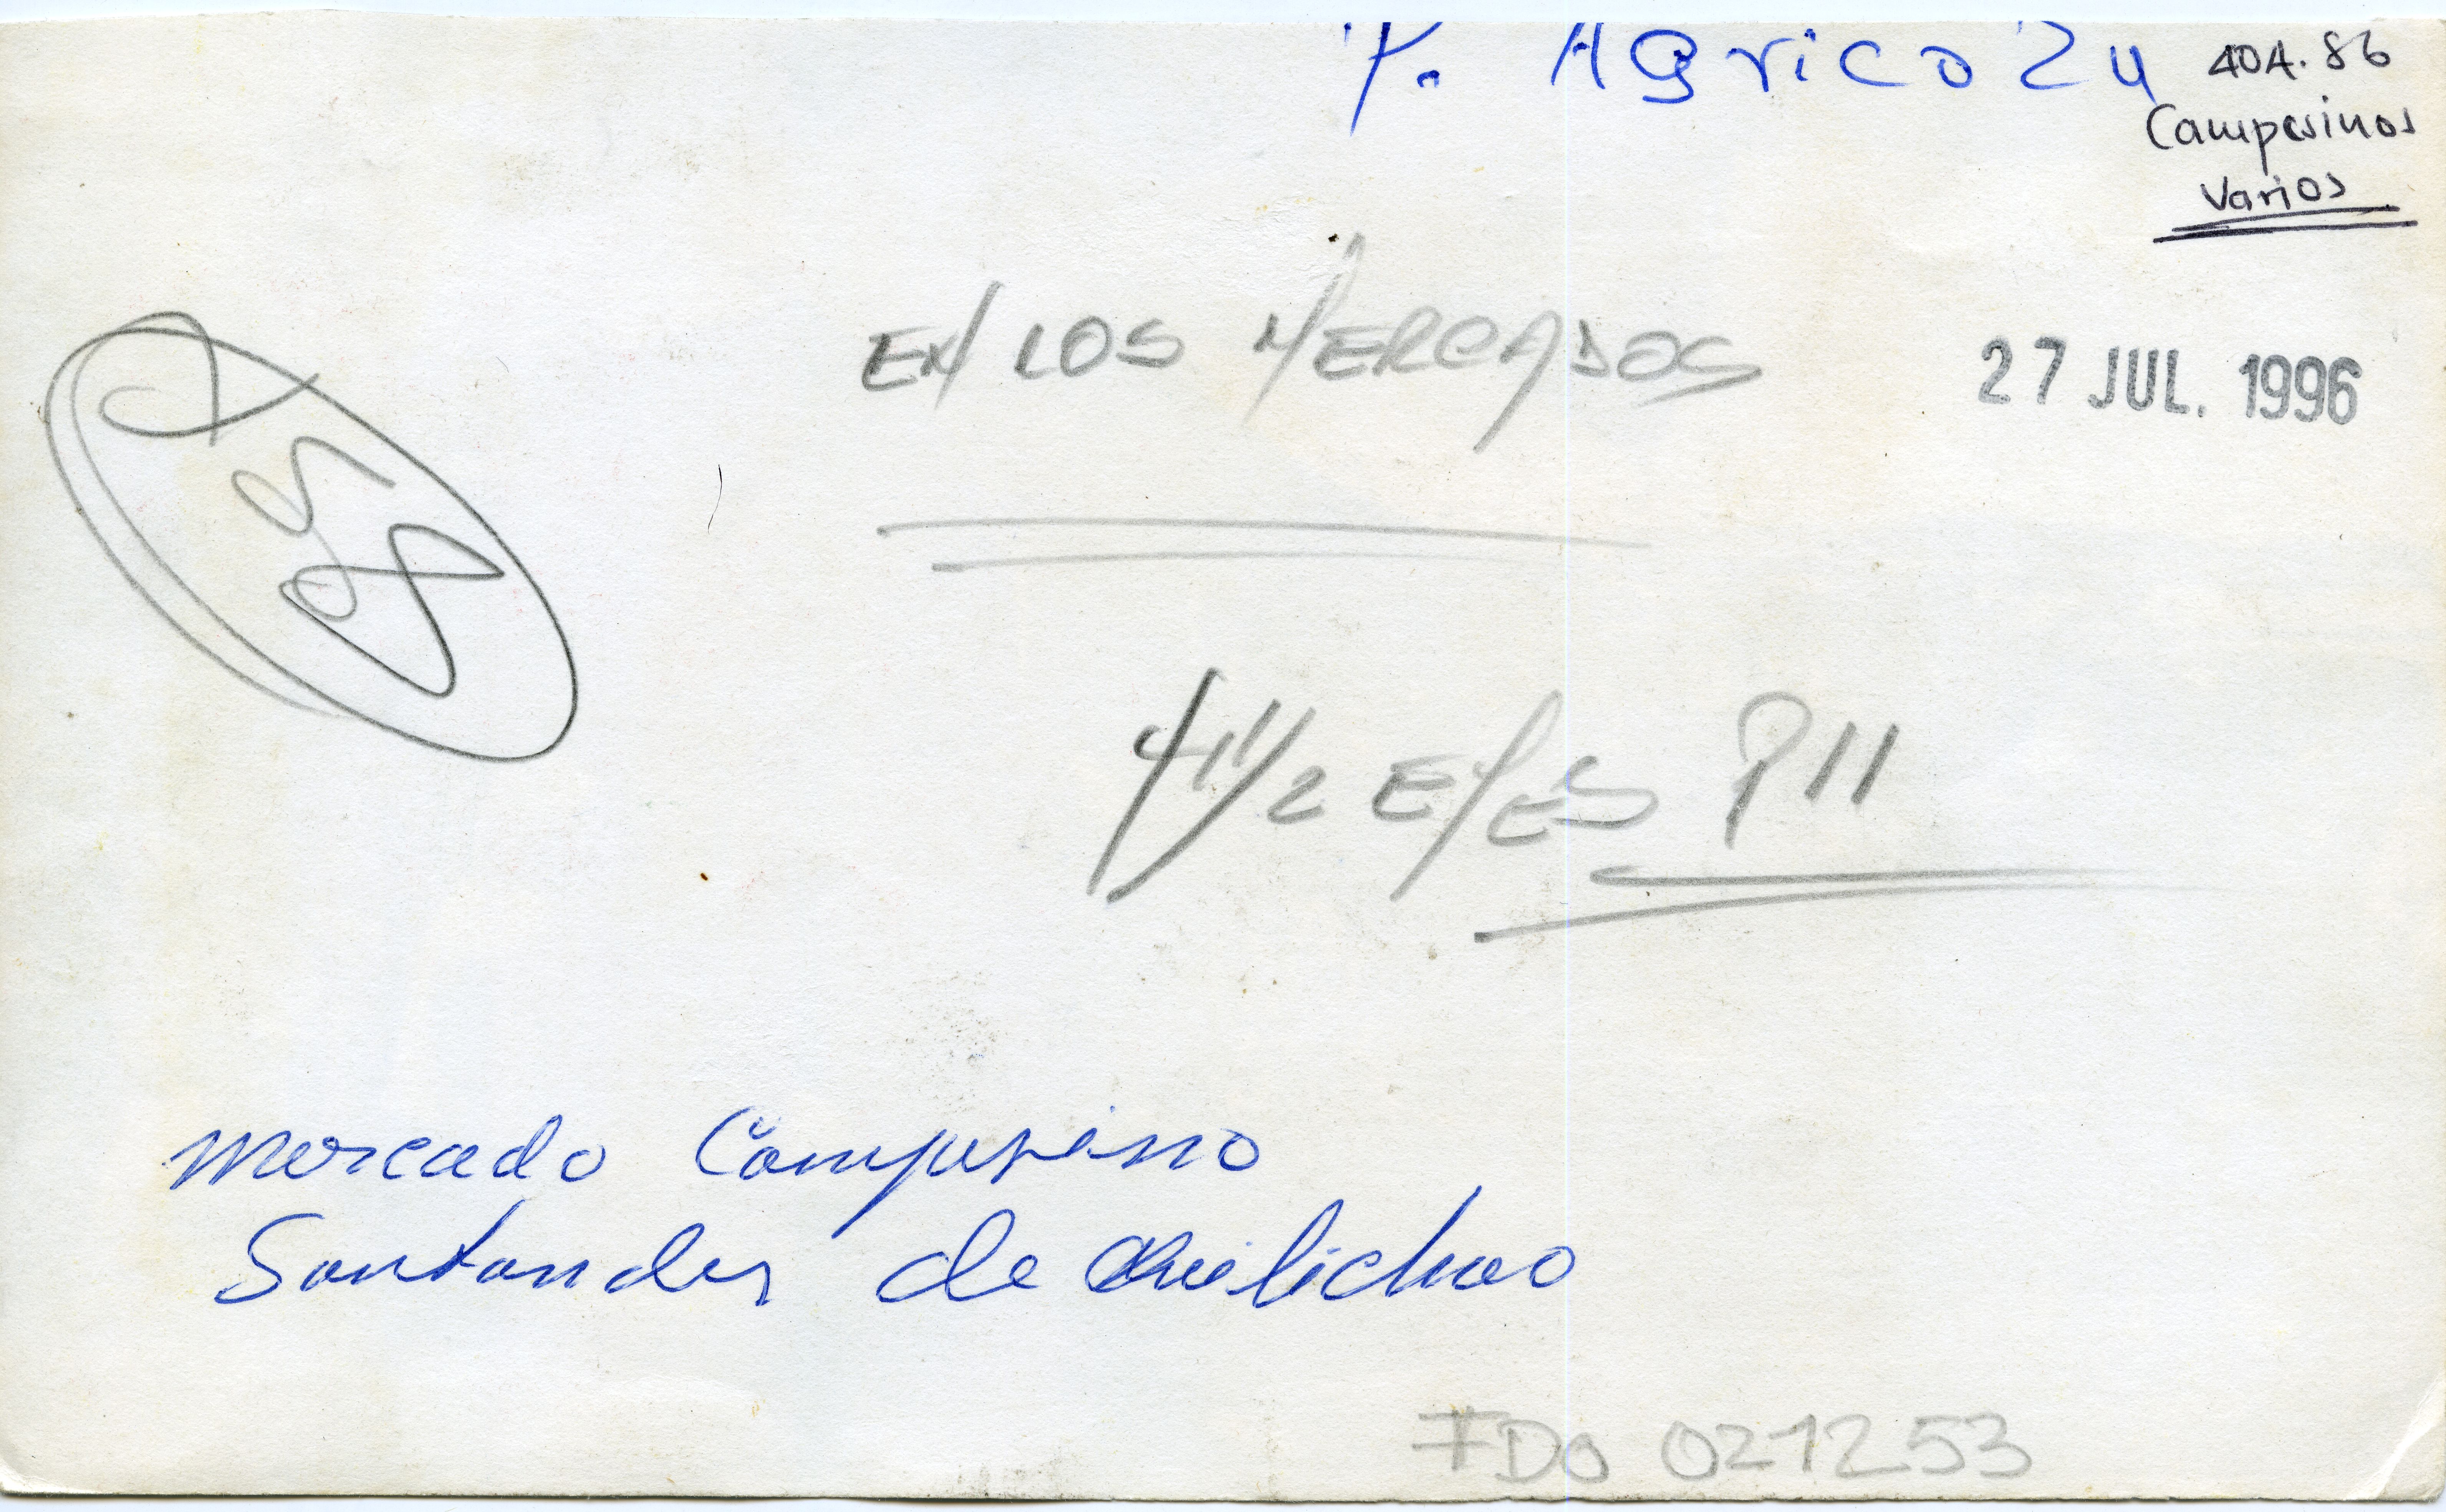 P. Agricola
404.86
Campesinos
Varios
EN LOS MERCADOS
27 JUL. 1996
P11
Mercado Campesino
Santander de Quilichao
FDO 021253